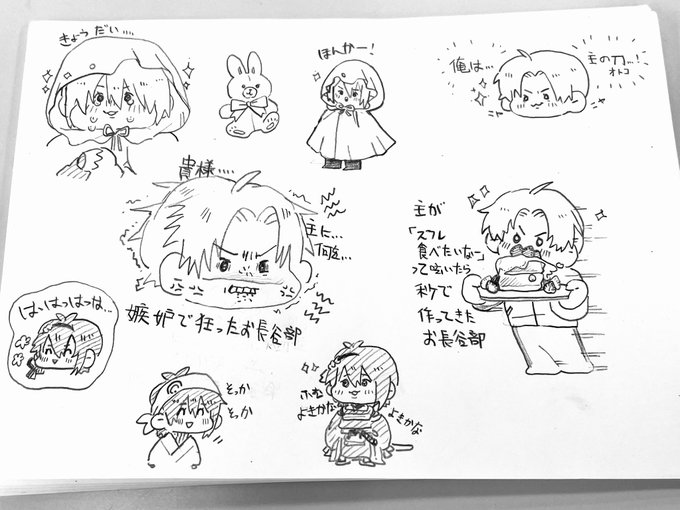 きょうだい....
ほんかー!
俺は...
主の刀...!
オトコ
貴様....
主に...
何を...
嫉妬で狂ったお長谷部
主が
「スフレ
食べたいな~」
って呟いたら
秒で
作ってきた
お長谷部
はっはっはっは...
そっか
そっか
ふむ
よきかな
よきかな